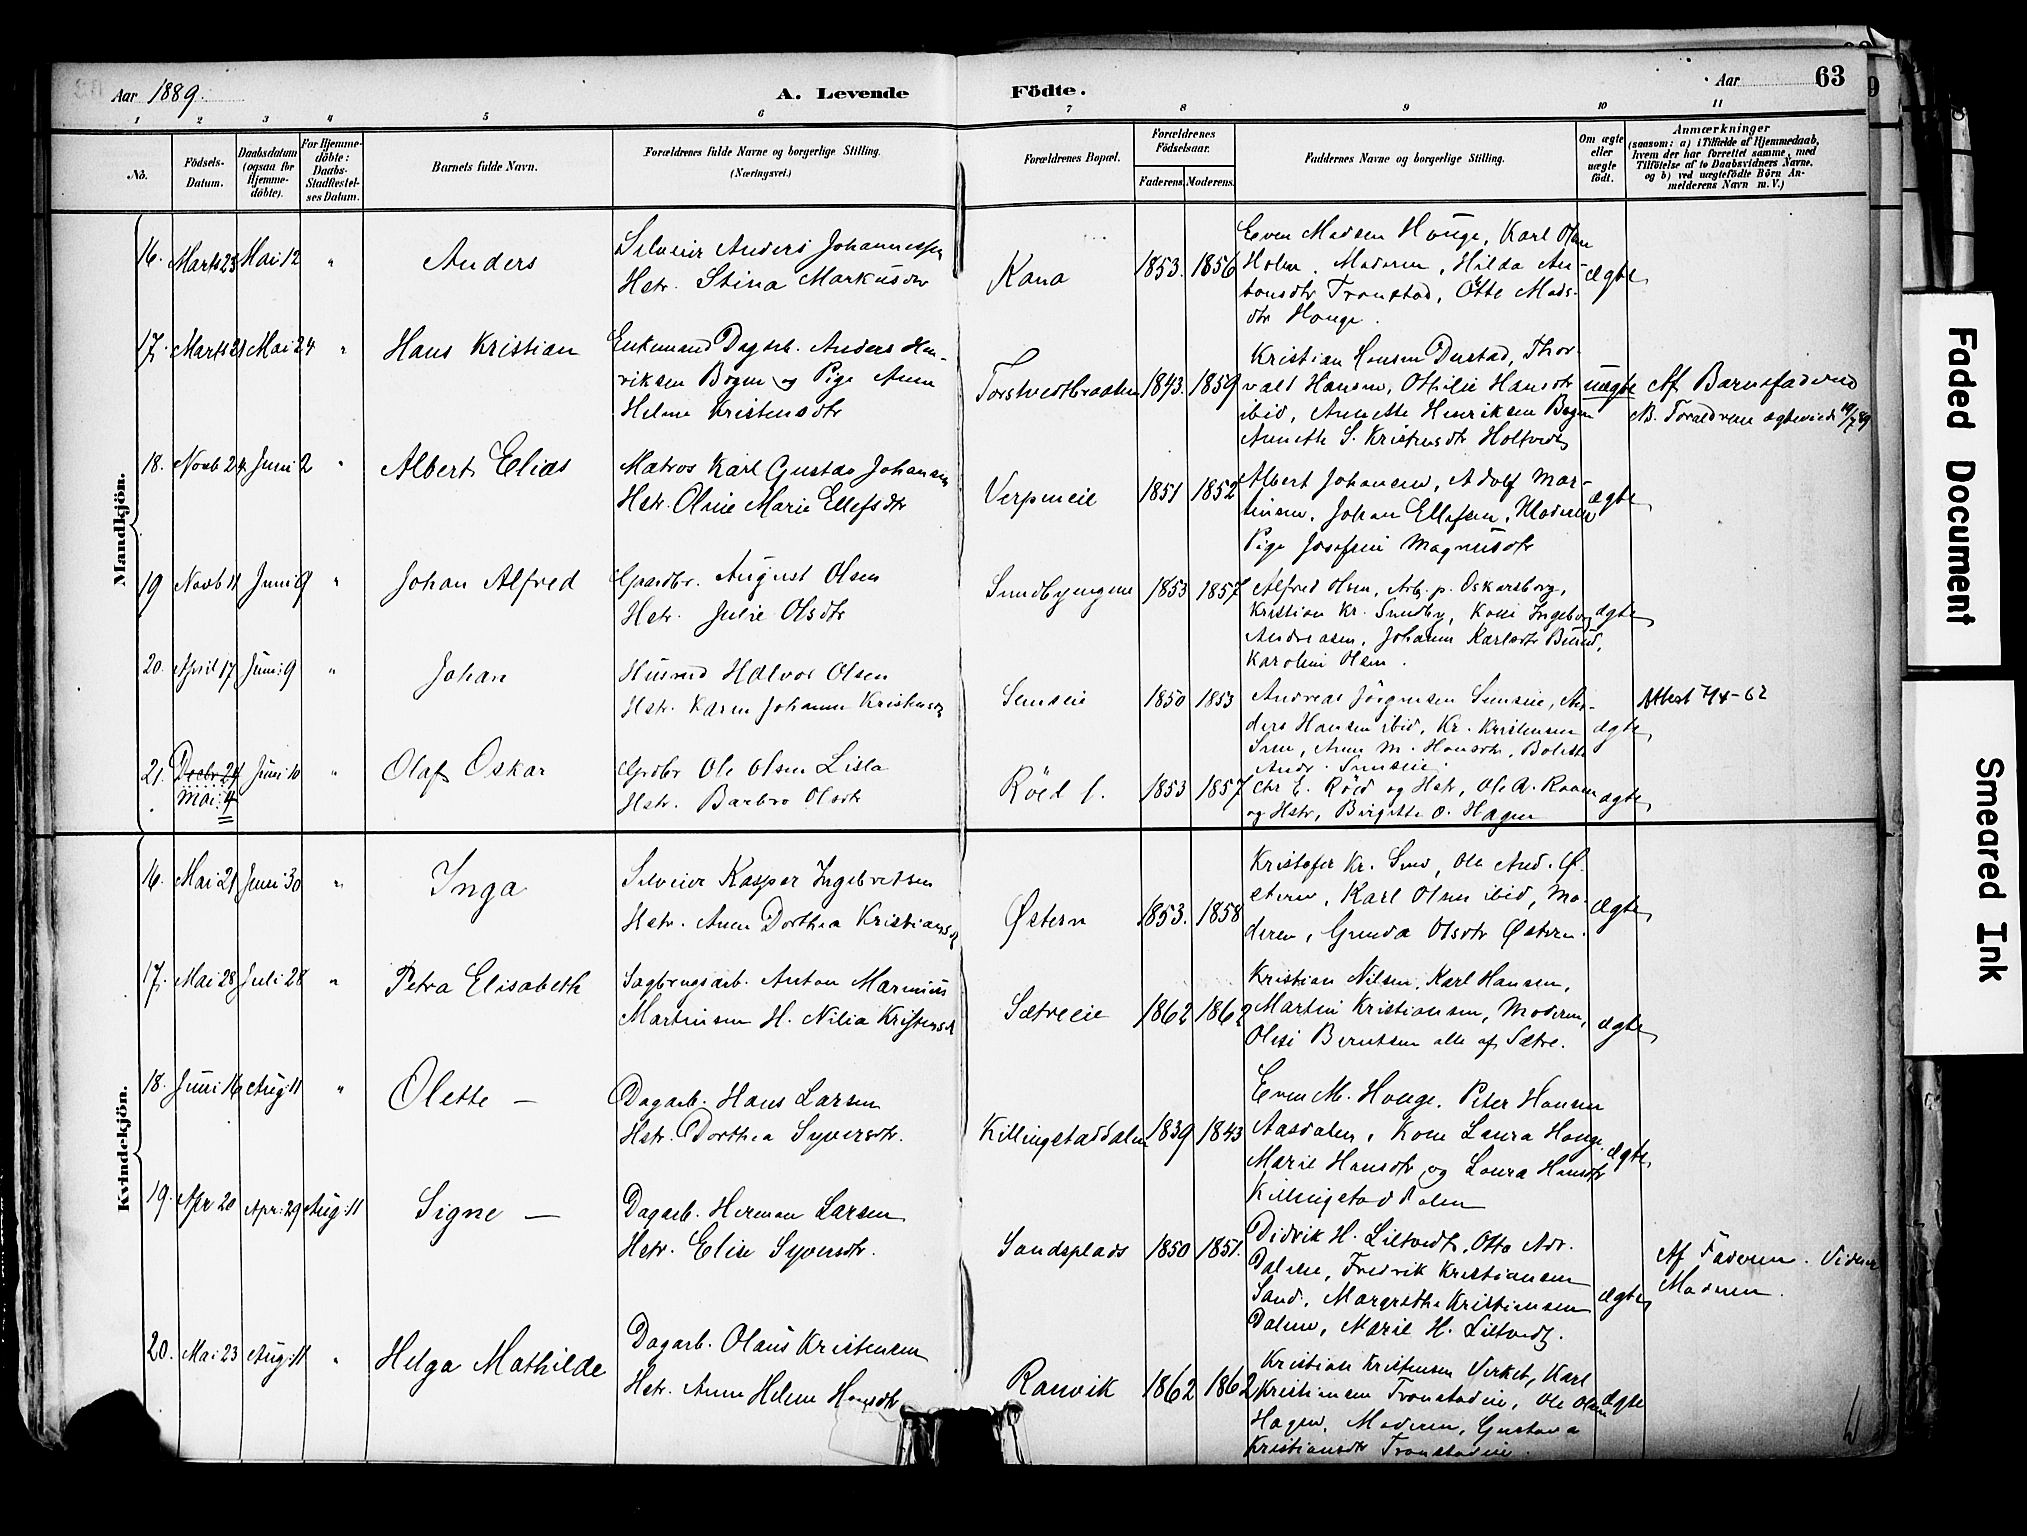 Aar 1889. A. Levende Födte. Aar 63
1 2 3 4 5 6 7 8 9 10 11
No. Födsels-Datum. Daabsdatum (ogsaa for Hjemme-döbte). For Hjemme-döbte: Daabs-Stadfæstel-ses Datum. Barnets fulde Navn. Forældrenes fulde Navne og borgerlige Stilling. (Næringsvei.) Forældrenes Bopæl. Forældrenes Födselsaar. Faderens. Moderens. Faddernes Navne og borgerlige Stilling. Om ægte eller uægte födt. Anmærkninger (saasom: a) i Tilfælde af Hjemmedaab, hvem der har forrettet samme, med Tilföielse af to Daabsvidners Navne, og b) ved uægtefödte Börn An-melderens Navn m. V.)
Mandkjön.
16. Marts 23 Mai 12 " Anders Selveier Anders Johannessen Kana 1853. 1856 Even Madsen Houge, Karl Olsen
Hstr. Stina Markusdtr
Holm. Moderen, Hilda An- ægte
tonsdtr Tronstad, Otte Mads-
dtr Houge.
17. Marts 31 Mai 24 " Hans Kristian Enkemand Dagarb. Anders Hen-
riksen Bogen og Pige Anne
Helene Kristensdtr
Torstvedtbraaten 1843. 1859 Kristian Hansen Dustad, Thor-
vald Hansen, Othilie Hansdtr
ibid, Annette Henriksen Bogen
Annette S. Kristensdtr Holtvedt
uægte Af Barnefaderen
NB. Forældrene ægteviede
18. Novb 24 Juni 2 " Albert Elias Matros Karl Gustav Johansen
Hstr. Oline Marie Ellefsdtr
Verpeneie 1851 1852 Albert Johansen, Adolf Mar-
tinsen, Johan Ellefsen, Moderen
Pige Josefine Magnusdtr
ægte
19 Novb 11 Juni 9 " Johan Alfred Gaardbr. August Olsen
Hstr. Julie Olsdtr
Sundbyengene 1853 1857 Alfred Olsen, Arb. p. Oskarsborg,
Kristian Kr. Sundby, Kone Ingeborg
Andreasen, Johanne Karlsdtr
Karoline Olsen.
ægte
20. April 17 Juni 9 " Johan Husmd Halvor Olsen
Hstr. Karen Johanne Kristensd
Semseie 1850 1853 Andreas Jörgensen Semseie, An-
ders Hansen ibid, Kr. Kristensen
Sem, Anne M. Hansdtr, Bolette
Andr. Semseie.
ægte Attest
21. Decbr 24 Juni 10 " Olaf Oskar Grdbr Ole Olsen Lisla
Mai 4 Hstr. Barbro Olsdtr
Röed 1853 1857 Chr E. Röed og Hstr, Ole A. Raaen
og Hstr, Birgitte O. Hagen
ægte
Kvindekjön.
16. Mai 21 Juni 30 " Inga Selveier Kasper Ingebretsen
Hstr. Anne Dorthea Kristiansd
Østern 1853. 1858 Kristofer Kr. Sem, Ole And. Ø-
stern, Karl Olsen ibid, Mo-
deren, Gunda Olsdtr Østern.
ægte
17. Mai 28 Juli 28 " Petra Elisabeth Sagbrugsarb. Anton Marinius
Martinsen H. Nilia Kristensd
Sætreeie 1862 1862 Kristian Nilsen, Karl Hansen,
Martin Kristiansen, Moderen,
Olise Berntsen alle af Sætre.
ægte
18. Juni 16 Aug: 11 " Olette — Dagarb. Hans Larsen
Hstr. Dorthea Syversdtr.
Killingstaddalen 1839 1843 Even M. Houge, Peter Hansen
Aasdalen, Kone Laura Houge
Marie Hansdtr og Laura Hansdtr
Killingstaddalen
ægte
19. Apr 20 Apr: 29 Aug: 11 Signe — Dagarb. Herman Larsen
Hstr. Elise Syversdtr.
Sandsplads 1850 1851. Didrik H. Liltvedt, Otto Adr.
Dalene, Fredrik Kristiansen
Sand, Margrethe Kristiansen
Dalene, Marie H. Liltvedt.
ægte Af Faderen. Vidner
Moderen.
20. Mai 23 Aug: 11 " Helga Mathilde Dagarb. Olaus Kristensen
Hstr. Anne Helene Hansdtr
Ranvik 1862 1862 Kristian Kristensen Virket, Karl
Kristiansen Tronstadeie, Ole Olsen
Hagen, Moderen, Gustava
Kristiansdtr Tronstadeie.
ægte
Faded Document
Smeared Ink